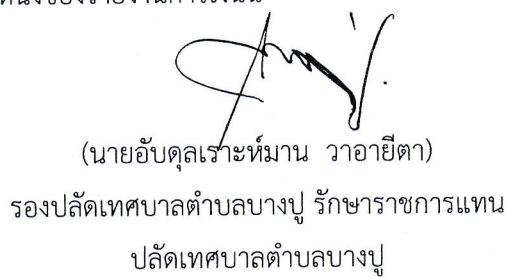 (นายอับดุลเราะห์มาน วาอายีตา)
รองปลัดเทศบาลตำบลบางปู รักษาราชการแทน
ปลัดเทศบาลตำบลบางปู